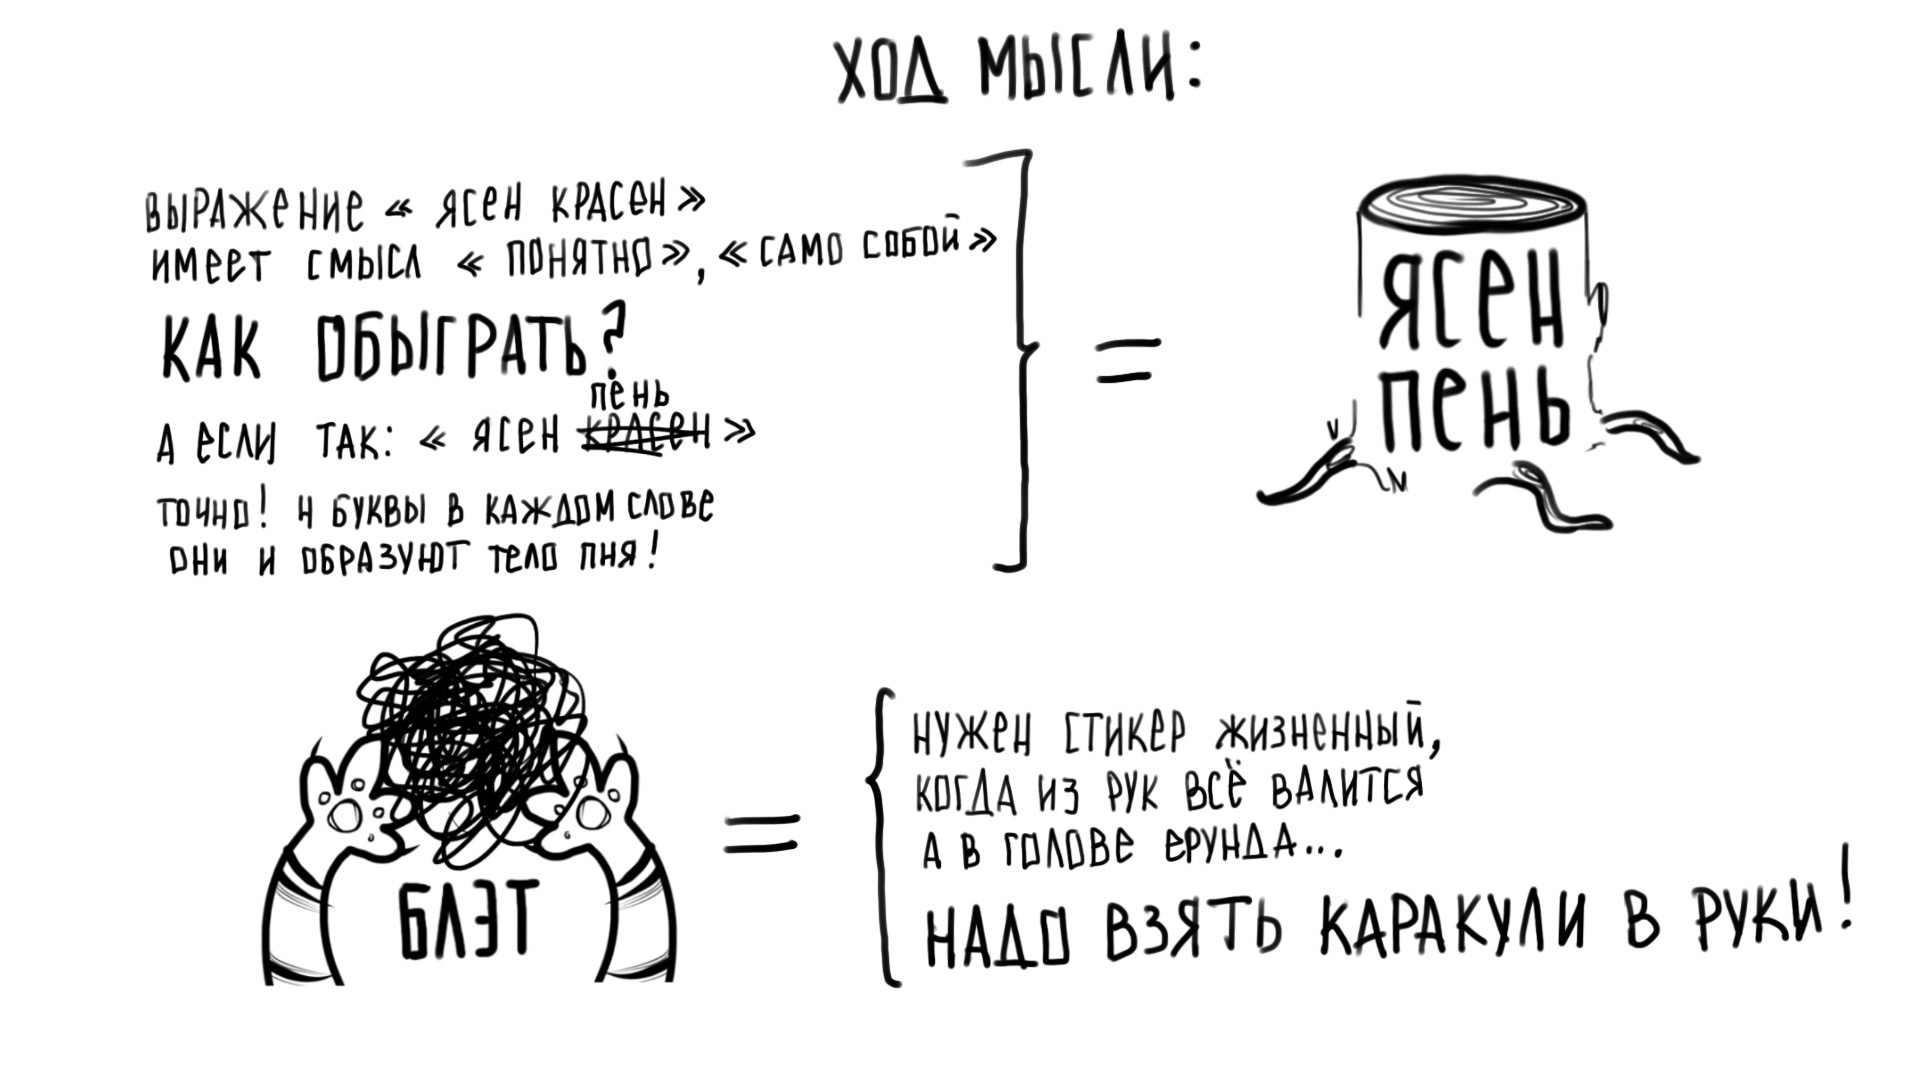 ХОД МЫСЛИ:
ВЫРАЖЕНИЕ « ЯСЕН КРАСЕН »
ИМЕЕТ СМЫСЛ « ПОНЯТНО », « САМО СОБОЙ »
КАК ОБЫГРАТЬ?
ПЕНЬ
А ЕСЛИ ТАК: « ЯСЕН КРАСЕН »
ТОЧНО! 4 БУКВЫ В КАЖДОМ СЛОВЕ
ОНИ И ОБРАЗУЮТ ТЕЛО ПНЯ!
=
ЯСЕН
ПЕНЬ
БЛЭТ
=
НУЖЕН СТИКЕР ЖИЗНЕННЫЙ,
КОГДА ИЗ РУК ВСЁ ВАЛИТСЯ
А В ГОЛОВЕ ЕРУНДА...
НАДО ВЗЯТЬ КАРАКУЛИ В РУКИ!